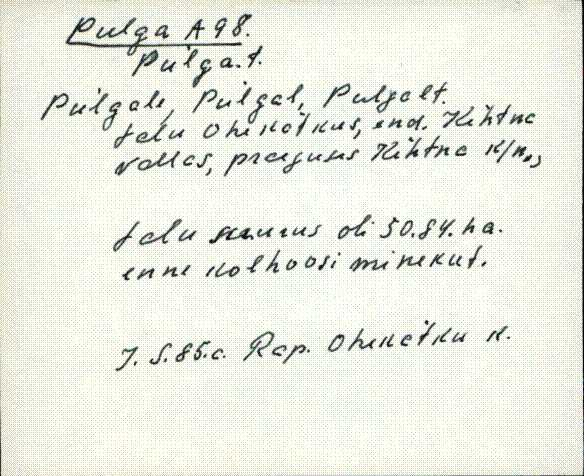 Pulga A 98.
Pulga.t.
Pulgale, Pulgal, Pulgalt.
talu Ohekõtkus, end. Kehtna
vallas, praeguses Kehtna k/n.,
talu suurus oli 50.84. ha.
enne kolhoosi minekut.
J. S. 85.a. Rap. Ohekatku k.